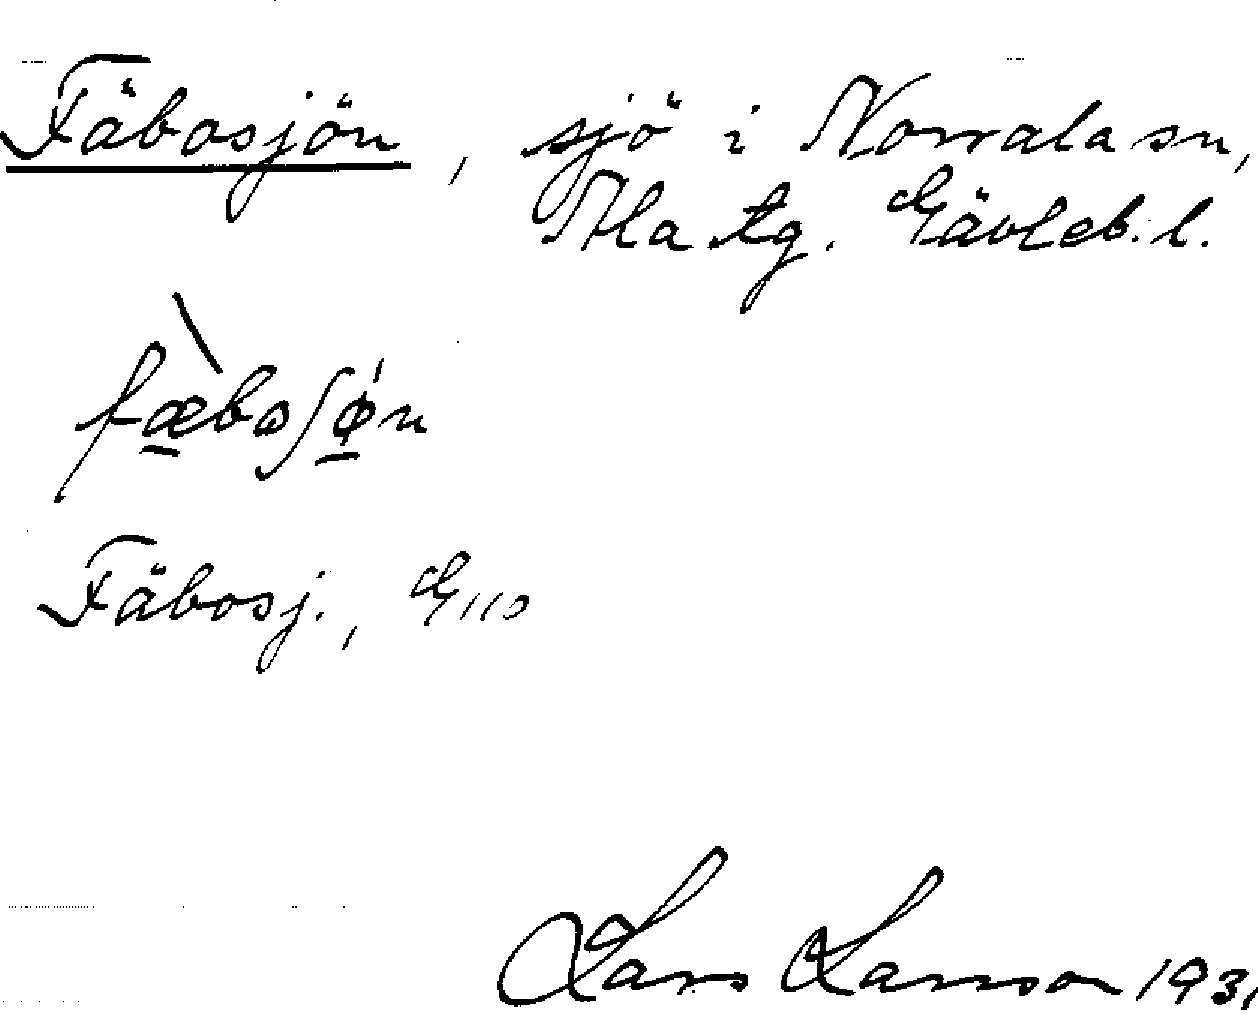 Fäbosjön, sjö i Norrala sn,
Ala tg. Gävleb. l.
fæ̀boʃǿn
Fäbosj., G110
Lars Larsson 1931